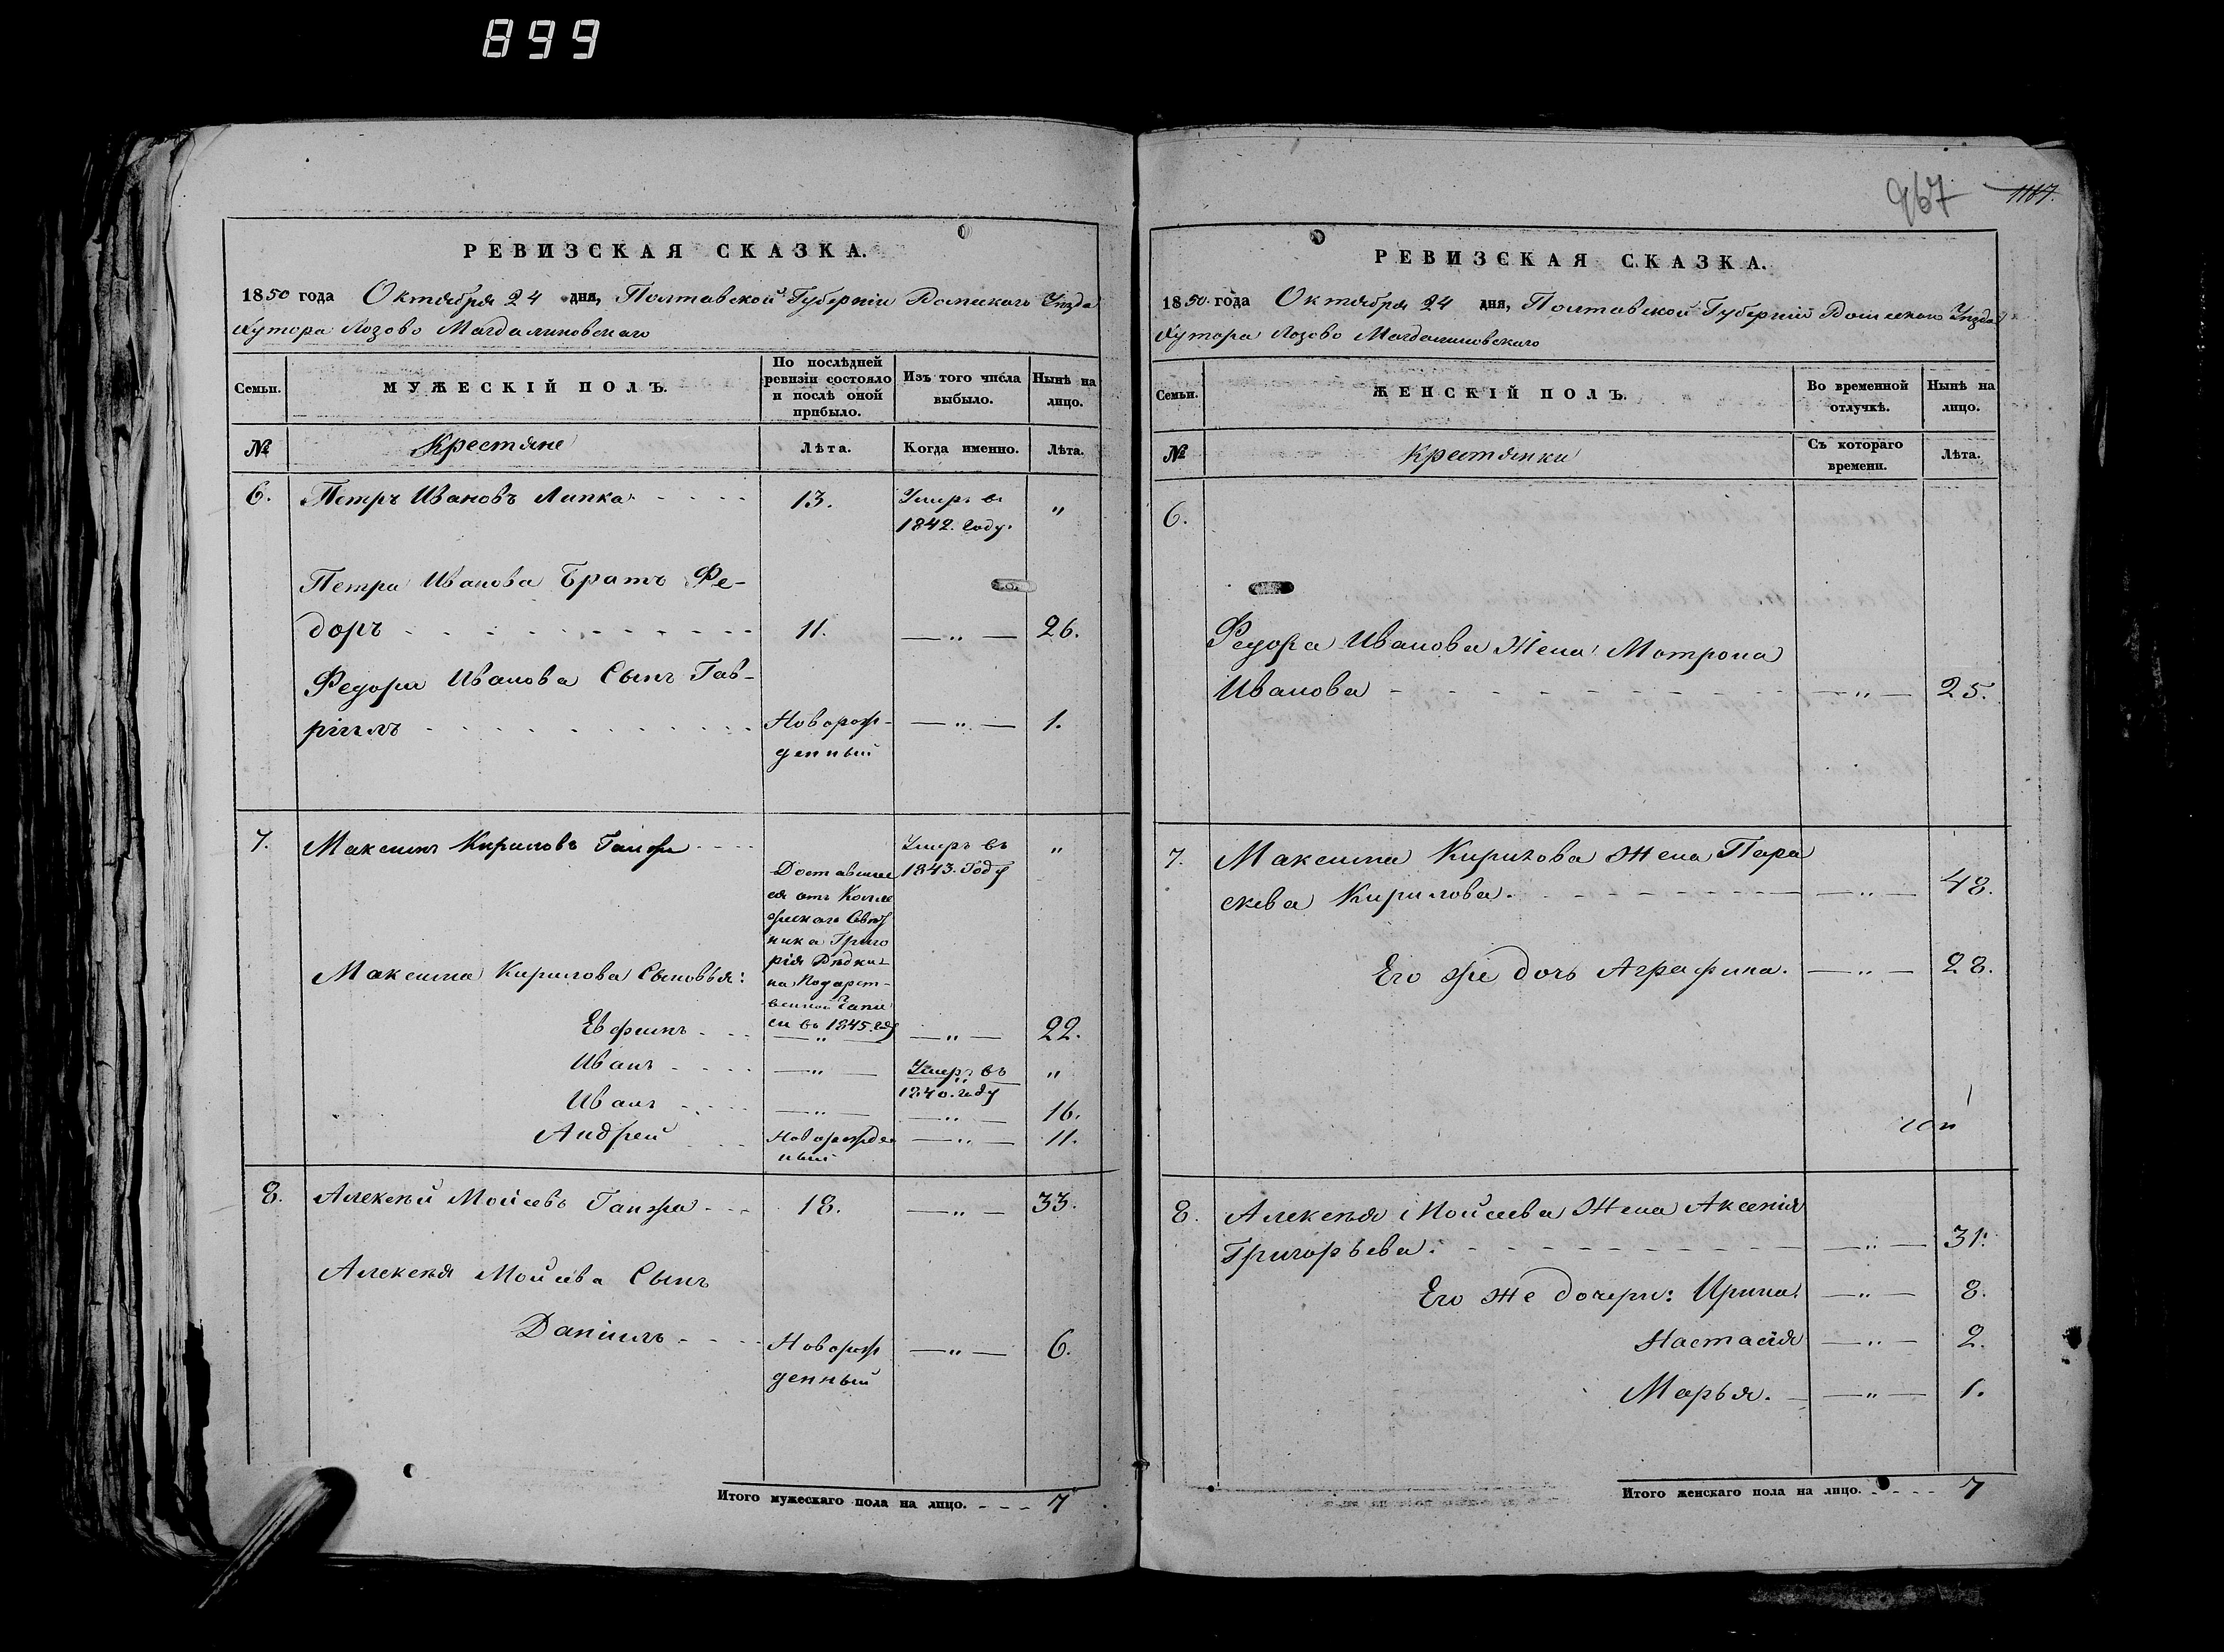 899
РЕВИЗСКАЯ СКАЗКА.
1850 года Октября 24 дня, Полтавской Губерніи Роменскаго Уѣзда
Хутора Лозово Магдалиновскаго
Семьи.
МУЖЕСКІЙ ПОЛЪ.
По послѣдней
ревизіи состояло
и послѣ оной
прибыло.
Изъ того числа
выбыло.
Нынѣ на
лицо.
№
Крестяне
Лѣта.
Когда именно.
Лѣта.
6. Петръ Ивановъ Липка 13. Умеръ въ "
1842. году.
Петра Иванова Братъ Фе-
доръ 11. — " — 26.
Федора Иванова Сынъ Гав-
ріилъ Новорож- — " — 1.
денный
7. Максимъ Кириловъ Ганжа Умеръ въ "
1843. Году
Доставшие
ся отъ Колле
жскаго Совѣт
ника Григо
рія Рѣдки-
на Подарст-
венной Запи
си въ 1845. году
Максима Кирилова Сыновья:
Евфимъ — " — — " — 22.
Иванъ — " — Умеръ въ "
1840. году
Иванъ — " — — " — 16.
Андрей Новорожде — " — 11.
ный
8. Алексѣй Мойсеевъ Ганжа 18. — " — 33.
Алексѣя Мойсеева Сынъ
Даніилъ Новорож — " — 6.
денный
Итого мужескаго пола на лицо. 7
967 1167.
РЕВИЗСКАЯ СКАЗКА.
1850. года Октября 24 дня, Полтавской Губерніи Роменскаго Уѣзда
Хутора Лозово Магдалиновскаго
Семьи.
ЖЕНСКІЙ ПОЛЪ.
Во временной
отлучкѣ.
Нынѣ на
лицо.
№
Крестянки
Съ котораго
времени.
Лѣта.
6.
Федора Иванова Жена Мотрона
Иванова — " — 25.
7. Максима Кирилова Жена Пара
скева Кирилова. — " — 48.
Его же дочь Аграфина. — " — 28.
8. Алексѣя Мойсеева Жена Аксенія
Григорьева. — " — 31.
Его же дочери: Ирина. — " — 8.
Настасія — " — 2.
Марья. — " — 1.
Итого женскаго пола на лицо. 7